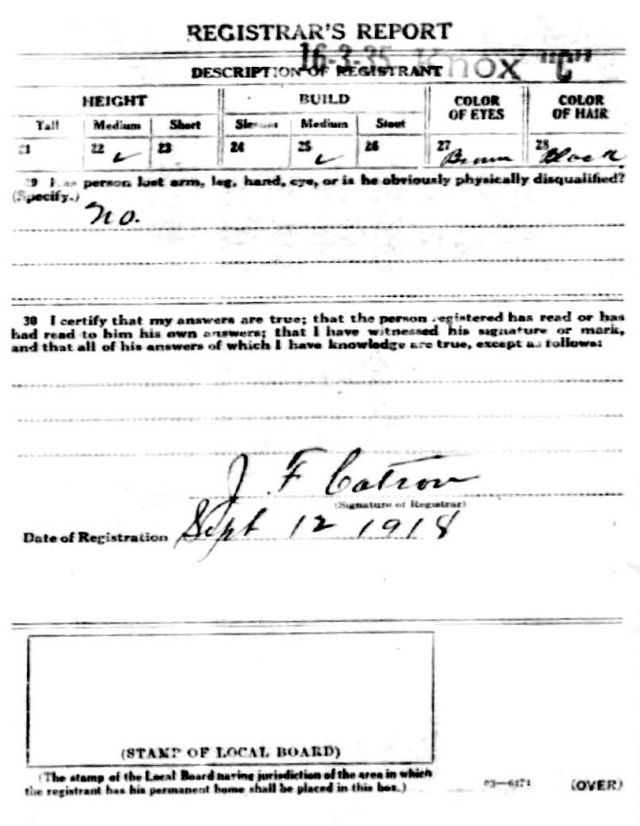 REGISTRAR'S REPORT
16-3-35 Knox "C"
DESCRIPTION OF REGISTRANT
HEIGHT BUILD COLOR OF EYES COLOR OF HAIR
Tall Medium Short Slender Medium Stout
21 22 ✓ 23 24 25 ✓ 26 27 Brown 28 Black
29 Has person lost arm, leg, hand, eye, or is he obviously physically disqualified?
(Specify.) No.
30 I certify that my answers are true; that the person registered has read or has
had read to him his own answers; that I have witnessed his signature or mark,
and that all of his answers of which I have knowledge are true, except as follows:
J. F. Catron
(Signature of Registrar)
Date of Registration Sept 12 1918
(STAMP OF LOCAL BOARD)
(The stamp of the Local Board having jurisdiction of the area in which
the registrant has his permanent home shall be placed in this box.)
03—6171 (OVER)